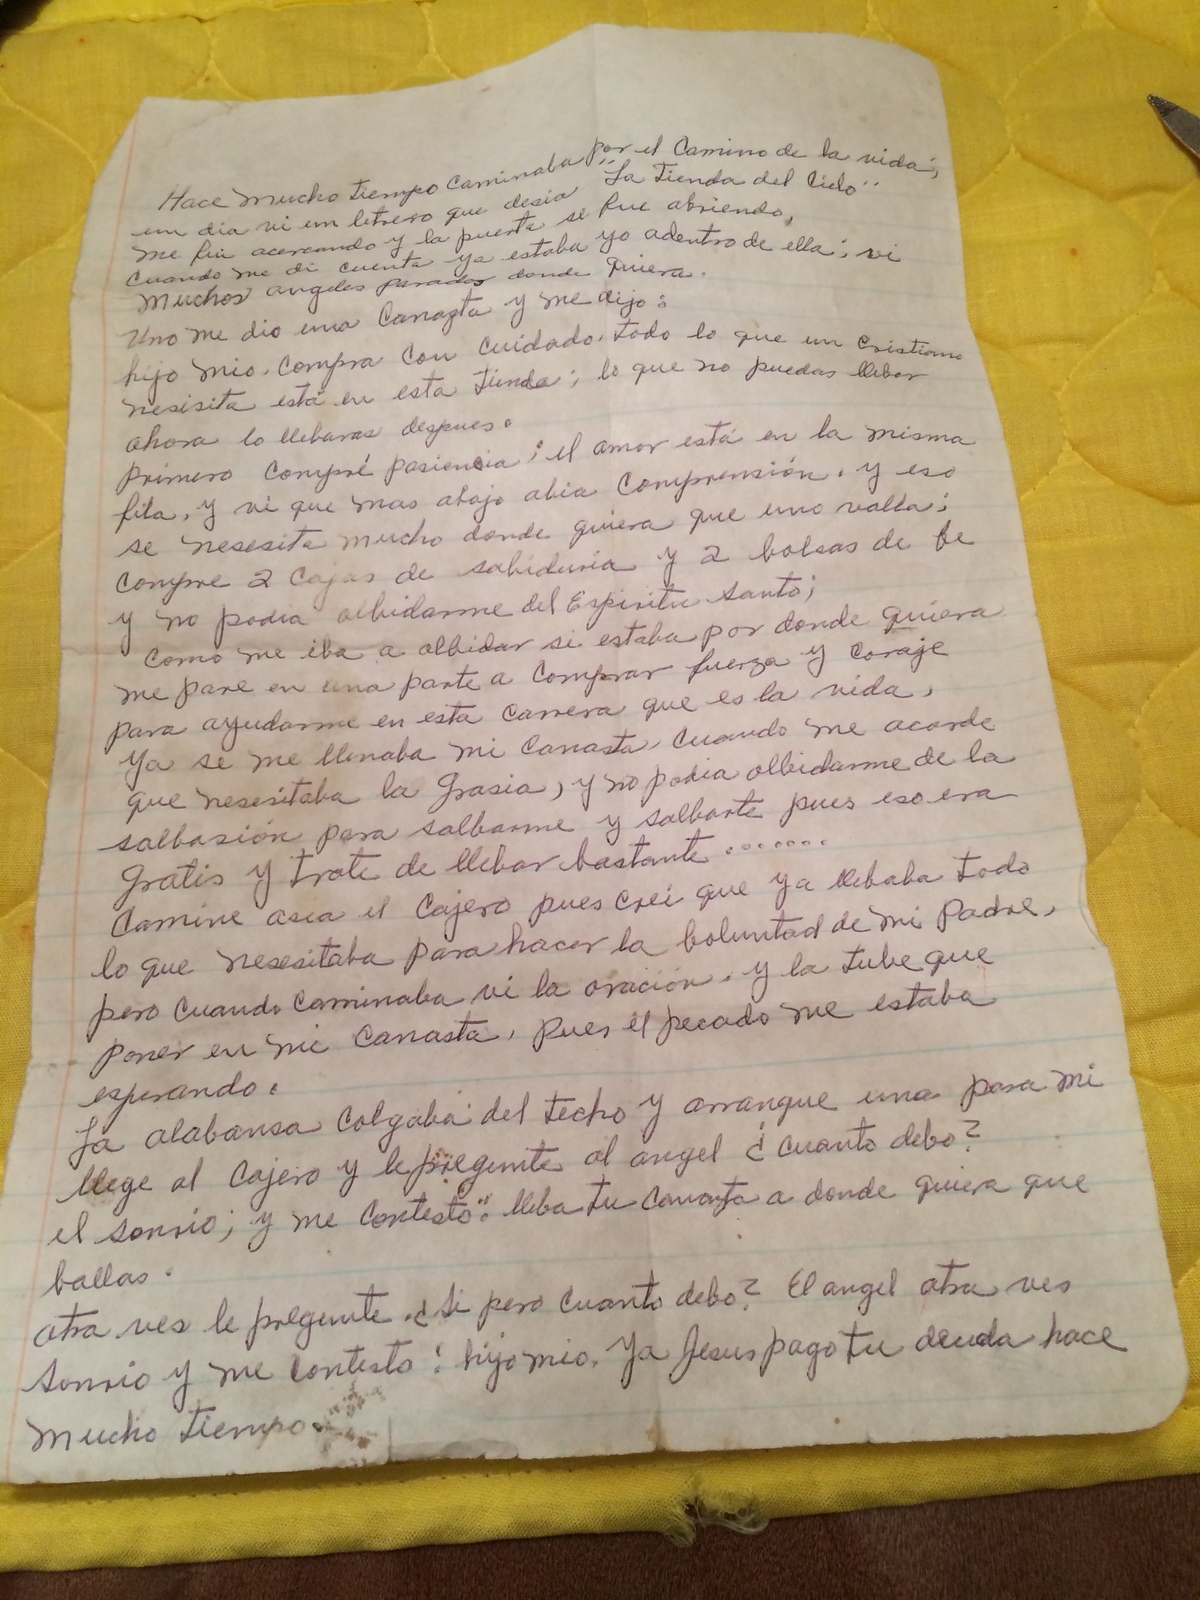 Hace mucho tiempo caminaba por el Camino de la vida;
un dia vi un letrero que desia "La Tienda del Cielo"
me fui acercando y la puerta se fue abriendo,
Cuando me di cuenta ya estaba yo adentro de ella; vi
Muchos angeles parados donde quiera.
Uno me dio una Canasta y me dijo:
hijo mio. Compra con cuidado. todo lo que un cristiano
nesisita está en esta tienda; lo que no puedas llebar
ahora lo llebaras despues.
primero Compré pasiencia; el amor está en la misma
fila, y vi que mas abajo abia Comprensión. y eso
se nesesita mucho donde quiera que uno valla;
compre 2 Cajas de sabiduria y 2 bolsas de fe
y no podia olbidarme del Espiritu Santo;
como me iba a olbidar si estaba por donde quiera
me pare en una parte a Comprar fuerza y coraje
para ayudarme en esta carrera que es la vida,
Ya se me llenaba mi Canasta, cuando me acorde
que nesesitaba la Grasia, y no podia olbidarme de la
salbasión para salbarme y salbarte pues eso era
gratis y trate de llebar bastante .......
Camine asia el Cajero pues crei que ya llebaba todo
lo que nesesitaba para hacer la boluntad de mi Padre,
pero cuando caminaba vi la oración. y la tube que
poner en mi canasta, pues el pecado me estaba
esperando.
La alabansa Colgaba del techo y arranque una para mi
llege al Cajero y le pregunte al angel ¿cuanto debo?
el sonrio; y me contesto: lleba tu Canasta a donde quiera que
ballas.
otra ves le pregunte. ¿Si pero cuanto debo? El angel otra ves
Sonrio y me contesto: hijo mio. Ya Jesus pago tu deuda hace
Mucho tiempo.